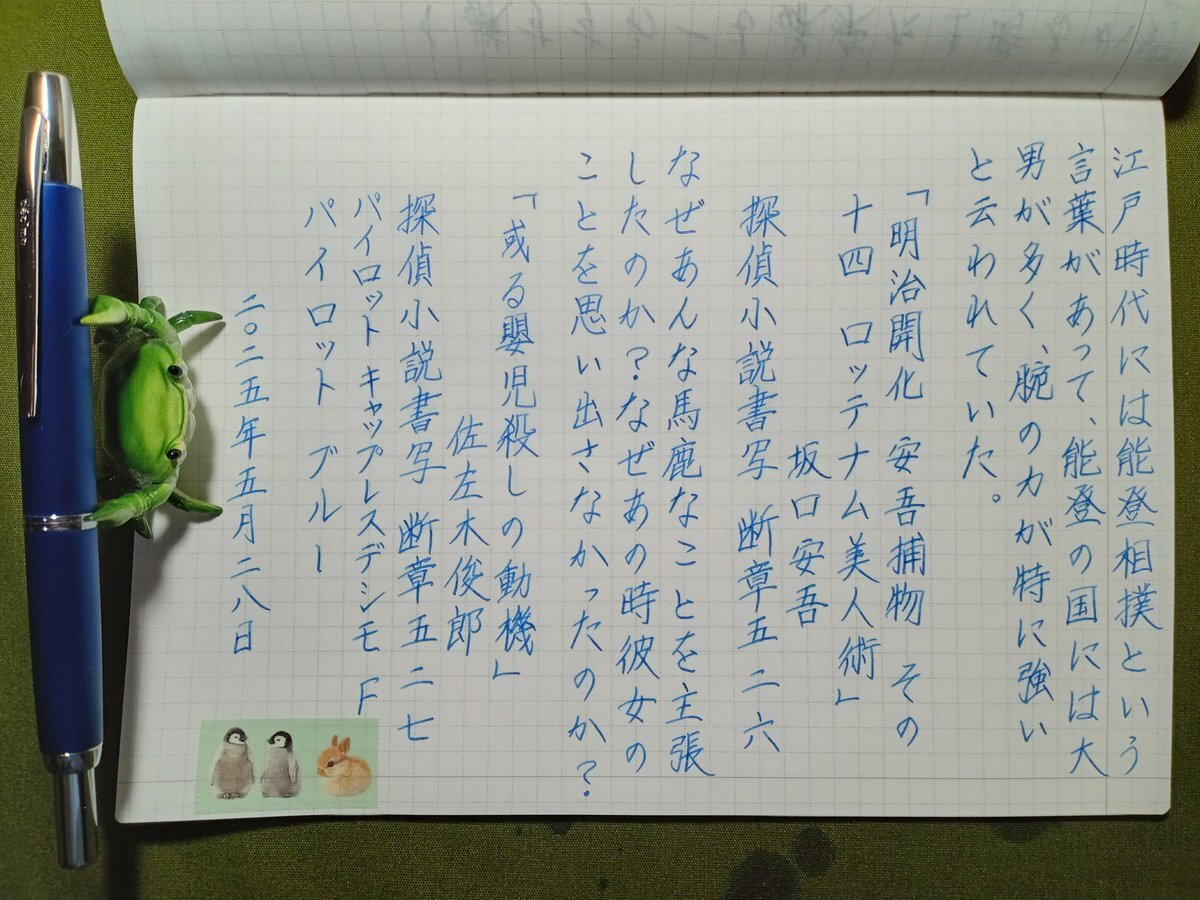 江戸時代には能登相撲という
言葉があって、能登の国には大
男が多く、腕の力が特に強い
と云われていた。
「明治開化 安吾捕物 その
十四 ロッテナム美人術」
坂口安吾
探偵小説書写 断章五二六
なぜあんな馬鹿なことを主張
したのか？なぜあの時彼女の
ことを思い出さなかったのか？
「或る嬰児殺しの動機」
佐左木俊郎
探偵小説書写 断章五二七
パイロット キャップレスデシモ F
パイロット ブルー
二〇二五年五月二八日